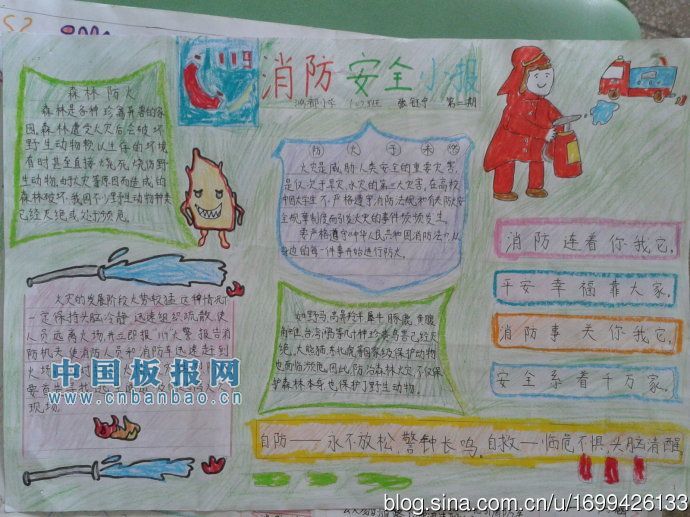 119
消防安全小报
第二期
森林防火
森林是各种珍禽异兽的家
园。森林遭受火灾后,会破坏
野生动物赖以生存的环境
有时甚至直接烧死、烧伤野
生动物。由于火灾等原因而造成的
森林破坏,我国不少野生动物种类
已经灭绝或处于濒危。
防火于未然
火灾是威胁人类安全的重要灾害,
是仅次于旱灾、水灾的第三大灾害。在高校
中因大学生不严格遵守消防法规和有关防火安
全规章制度而引发火灾的事件频频发生。
要严格遵守《中华人民共和国消防法》,从
身边的每一件事开始进行防火。
消防连着你我它。
平安幸福靠大家。
消防事关你我它。
安全系着千万家。
火灾的发展阶段火势较猛,这种情况下
一定保持头脑冷静,迅速组织疏散,使
人员远离火场,并立即报“119”火警,报告消
防机关,使消防人员和消防车迅速赶到
火场
现场。
如野马、高鼻羚羊、犀牛、豚鹿、朱鹮
等几十种珍贵鸟兽已经灭
绝,大熊猫、东北虎等国家级保护动物
也面临濒危。因此,防治森林火灾,不仅保
护森林本身,也保护了野生动物。
自防——永不放松,警钟长鸣。自救——临危不惧,头脑清醒
中国板报网
www.cnbanbao.cn
blog.sina.com.cn/u/1699426133